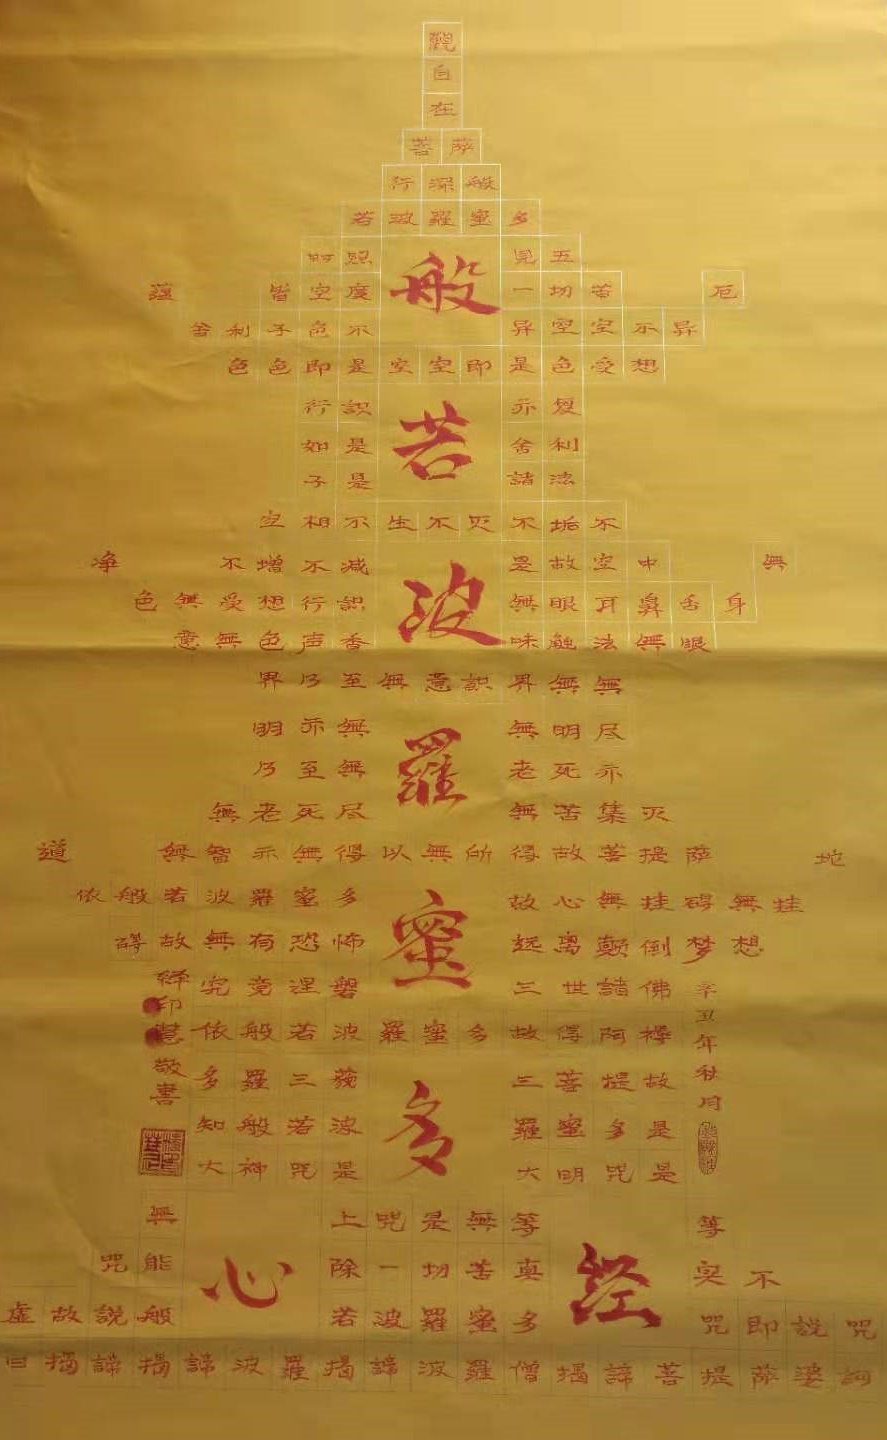 觀
自
在
菩薩
行深般
若波羅蜜多
時照見五
蘊皆空度一切苦厄
舍利子色不异空空不异
色色即是空空即是色受想
行識亦复
如是舍利
子是諸法
空相不生不灭不垢不
净不增不減是故空中無
色無受想行識無眼耳鼻舌身
意無色声香味触法無眼
界乃至無意識界無無
明亦無無明尽
乃至無老死亦
無老死尽無苦集灭
道無智亦無得以無所得故菩提薩地
依般若波羅蜜多故心無挂碍無挂
碍故無有恐怖远离顛倒梦想
究竟涅磐三世諸佛
依般若波羅蜜多故得阿褥
多羅三藐三菩提故
知般若波羅蜜多是
大神咒是大明咒是
無上咒是無等等
咒能除一切苦真实不
虛故說般若波羅蜜多咒即說咒
曰揭諦揭諦波羅揭諦波羅僧揭諦菩提薩婆訶
般若波羅蜜多
心经
辛丑年秋月
敬書